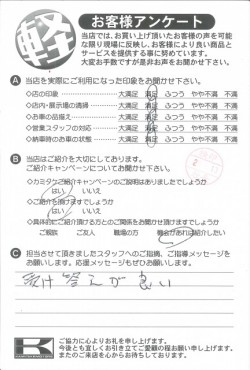 軽
お客様アンケート
当店では、お買い上げ頂いたお客様の声を可能
な限り現場に反映し、お客様により良い商品と
サービスを提供する事に努めています。
大変お手数ですが是非お声をお聞かせ下さい。
A 当店を実際にご利用になった印象をお聞かせ下さい。
◇店の印象 大満足 満足 ふつう やや不満 不満
◇店内・展示場の清掃 大満足 満足 ふつう やや不満 不満
◇お車の品揃え 大満足 満足 ふつう やや不満 不満
◇営業スタッフの対応 大満足 満足 ふつう やや不満 不満
◇納車時のお車の状態 大満足 満足 ふつう やや不満 不満
B 当店はご紹介を大切にしております。
ご紹介キャンペーンについてお聞かせ下さい。
◇カミタケご紹介キャンペーンのご説明はありましたでしょうか
はい いいえ
◇ご紹介を頂けますでしょうか
はい いいえ
◇具体的にご紹介頂ける方とのご関係をお聞かせ頂けますでしょうか
ご親族 ご友人 職場の方 機会があれば紹介したい
C 担当させて頂きましたスタッフへのご指摘、ご指導メッセージを
お願いします。応援メッセージもぜひお願いします。
受け答えが良い
K
ご協力に心よりお礼を申し上げます。
今後とも宜しくお引き立てご愛顧の程お願い申し上げます。
またのご来店を心からお待ちしております。